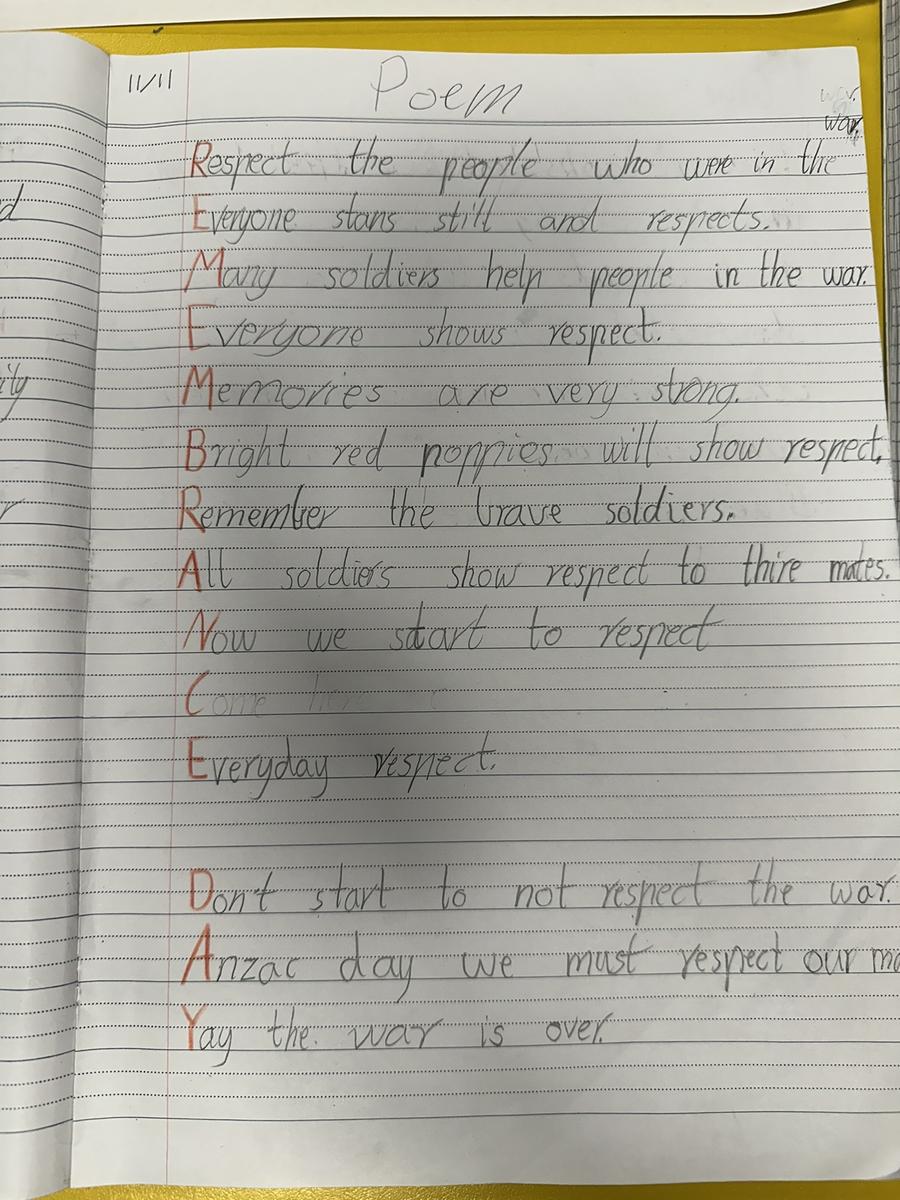 11/11 Poem
Respect the people who were in the war.
Everyone stans still and respects.
Many soldiers help people in the war.
Everyone shows respect.
Memories are very strong.
Bright red poppies will show respect.
Remember the brave soldiers.
All soldiers show respect to thire mates.
Now we start to respect
Come here
Everyday respect.
Don't start to not respect the war.
Anzac day we must respect our
Yay the war is over.